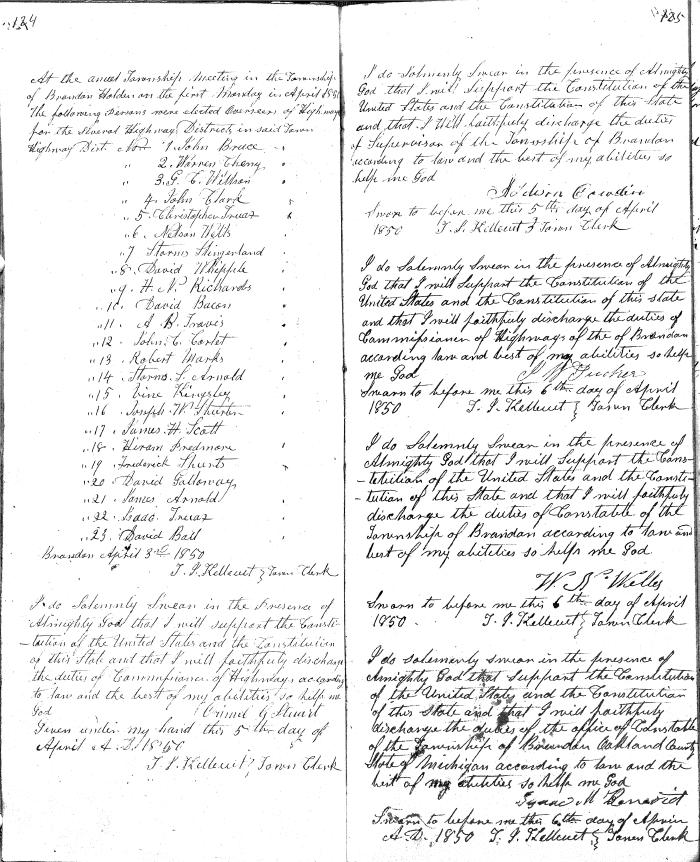 124
At the annul Township Meeting in the Township
of Brandon Holden on the first Monday in April 1850
The following Persons were elected Overseers of Highway
for the Several Highway Districts in said Town
Highway Dist No 1. John Bruce
" 2. Warren Cheny
" 3. G. C. Willson
" 4. John Clark
" 5. Christopher Truax
" 6. Nelson Wells
" 7 Storms Slingerland
" 8. David Whipple
" 9. H. N. Richards
" 10. David Bacon
" 11. A. B. Travis
" 12. John. C. Corlet
" 13. Robert Marks
" 14. Storms. S. Arnold
" 15. Vine Kingsley
" 16. Joseph. W. Thurston
" 17. James. H. Scott
" 18. Hiram Predmore
" 19. Frederick Shurts
" 20 David Galloway
" 21. James Arnold
" 22. Isaac Truax
" 23. David Ball
Brandon April 3rd 1850
T. J. Kellicut } Town Clerk
I do Solemnly Swear in the Presence of
Almighty God that I will support the Consti-
-tution of the United States and the Constitution
of this State and that I will faithfully discharge
the duties of Commissiance of Highways according
to law and the best of my abilities so help me
God Orinel G Stuart
Given under my hand this 5th day of
April A. D. 1850
T. J. Kellicut } Town Clerk
125
I do Solemnly Swear in the presence of Almighty
God that I will Support the Constitution of the
United States and the Constitution of this State
and that I Will faithfully discharge the duties
of Supervisor of the Township of Brandon
according to law and the best of my abilities so
help me God
Sworn to before me this 5th day of April
1850 T. J. Kellicut } Town Clerk
I do Solemnly Swear in the presence of Almighty
God that I will Support the Constitution of the
United States and the Constitution of this state
and that I will faithfully discharge the duties of
Commissioner of Highways of the of Brandon
according law and best of my abilities so help
me God J W Tucker
Swarn to before me this 6th day of April
1850 T. J. Kellicut } Town Clerk
I do Solemnly Swear in the presence of
Almighty God that I will Support the Cons-
-tetuition of the United States and the Consti-
-tution of this State and that I will faithfully
discharge the duties of Constable of the
Township of Brandon according to law and
best of my abilities so helps me God
W. N. Welles
Sworn to before me this 6th day of April
1850 - T. J. Kellicut } Town Clerk
I do solemenly Swear in the presence of
Almighty God that Support the Constitution
of the United States and the Constitution
of this State and that I will faithfully
discharge the duties of the office of Constable
of the Township of Brandon Oakland County
State of Michigan according to law and the
best of my abilities so help me God
Isaac M Benedict
Sworn to before me this 6th day of April
A. D. 1850 T. J. Kellicut } Town Clerk